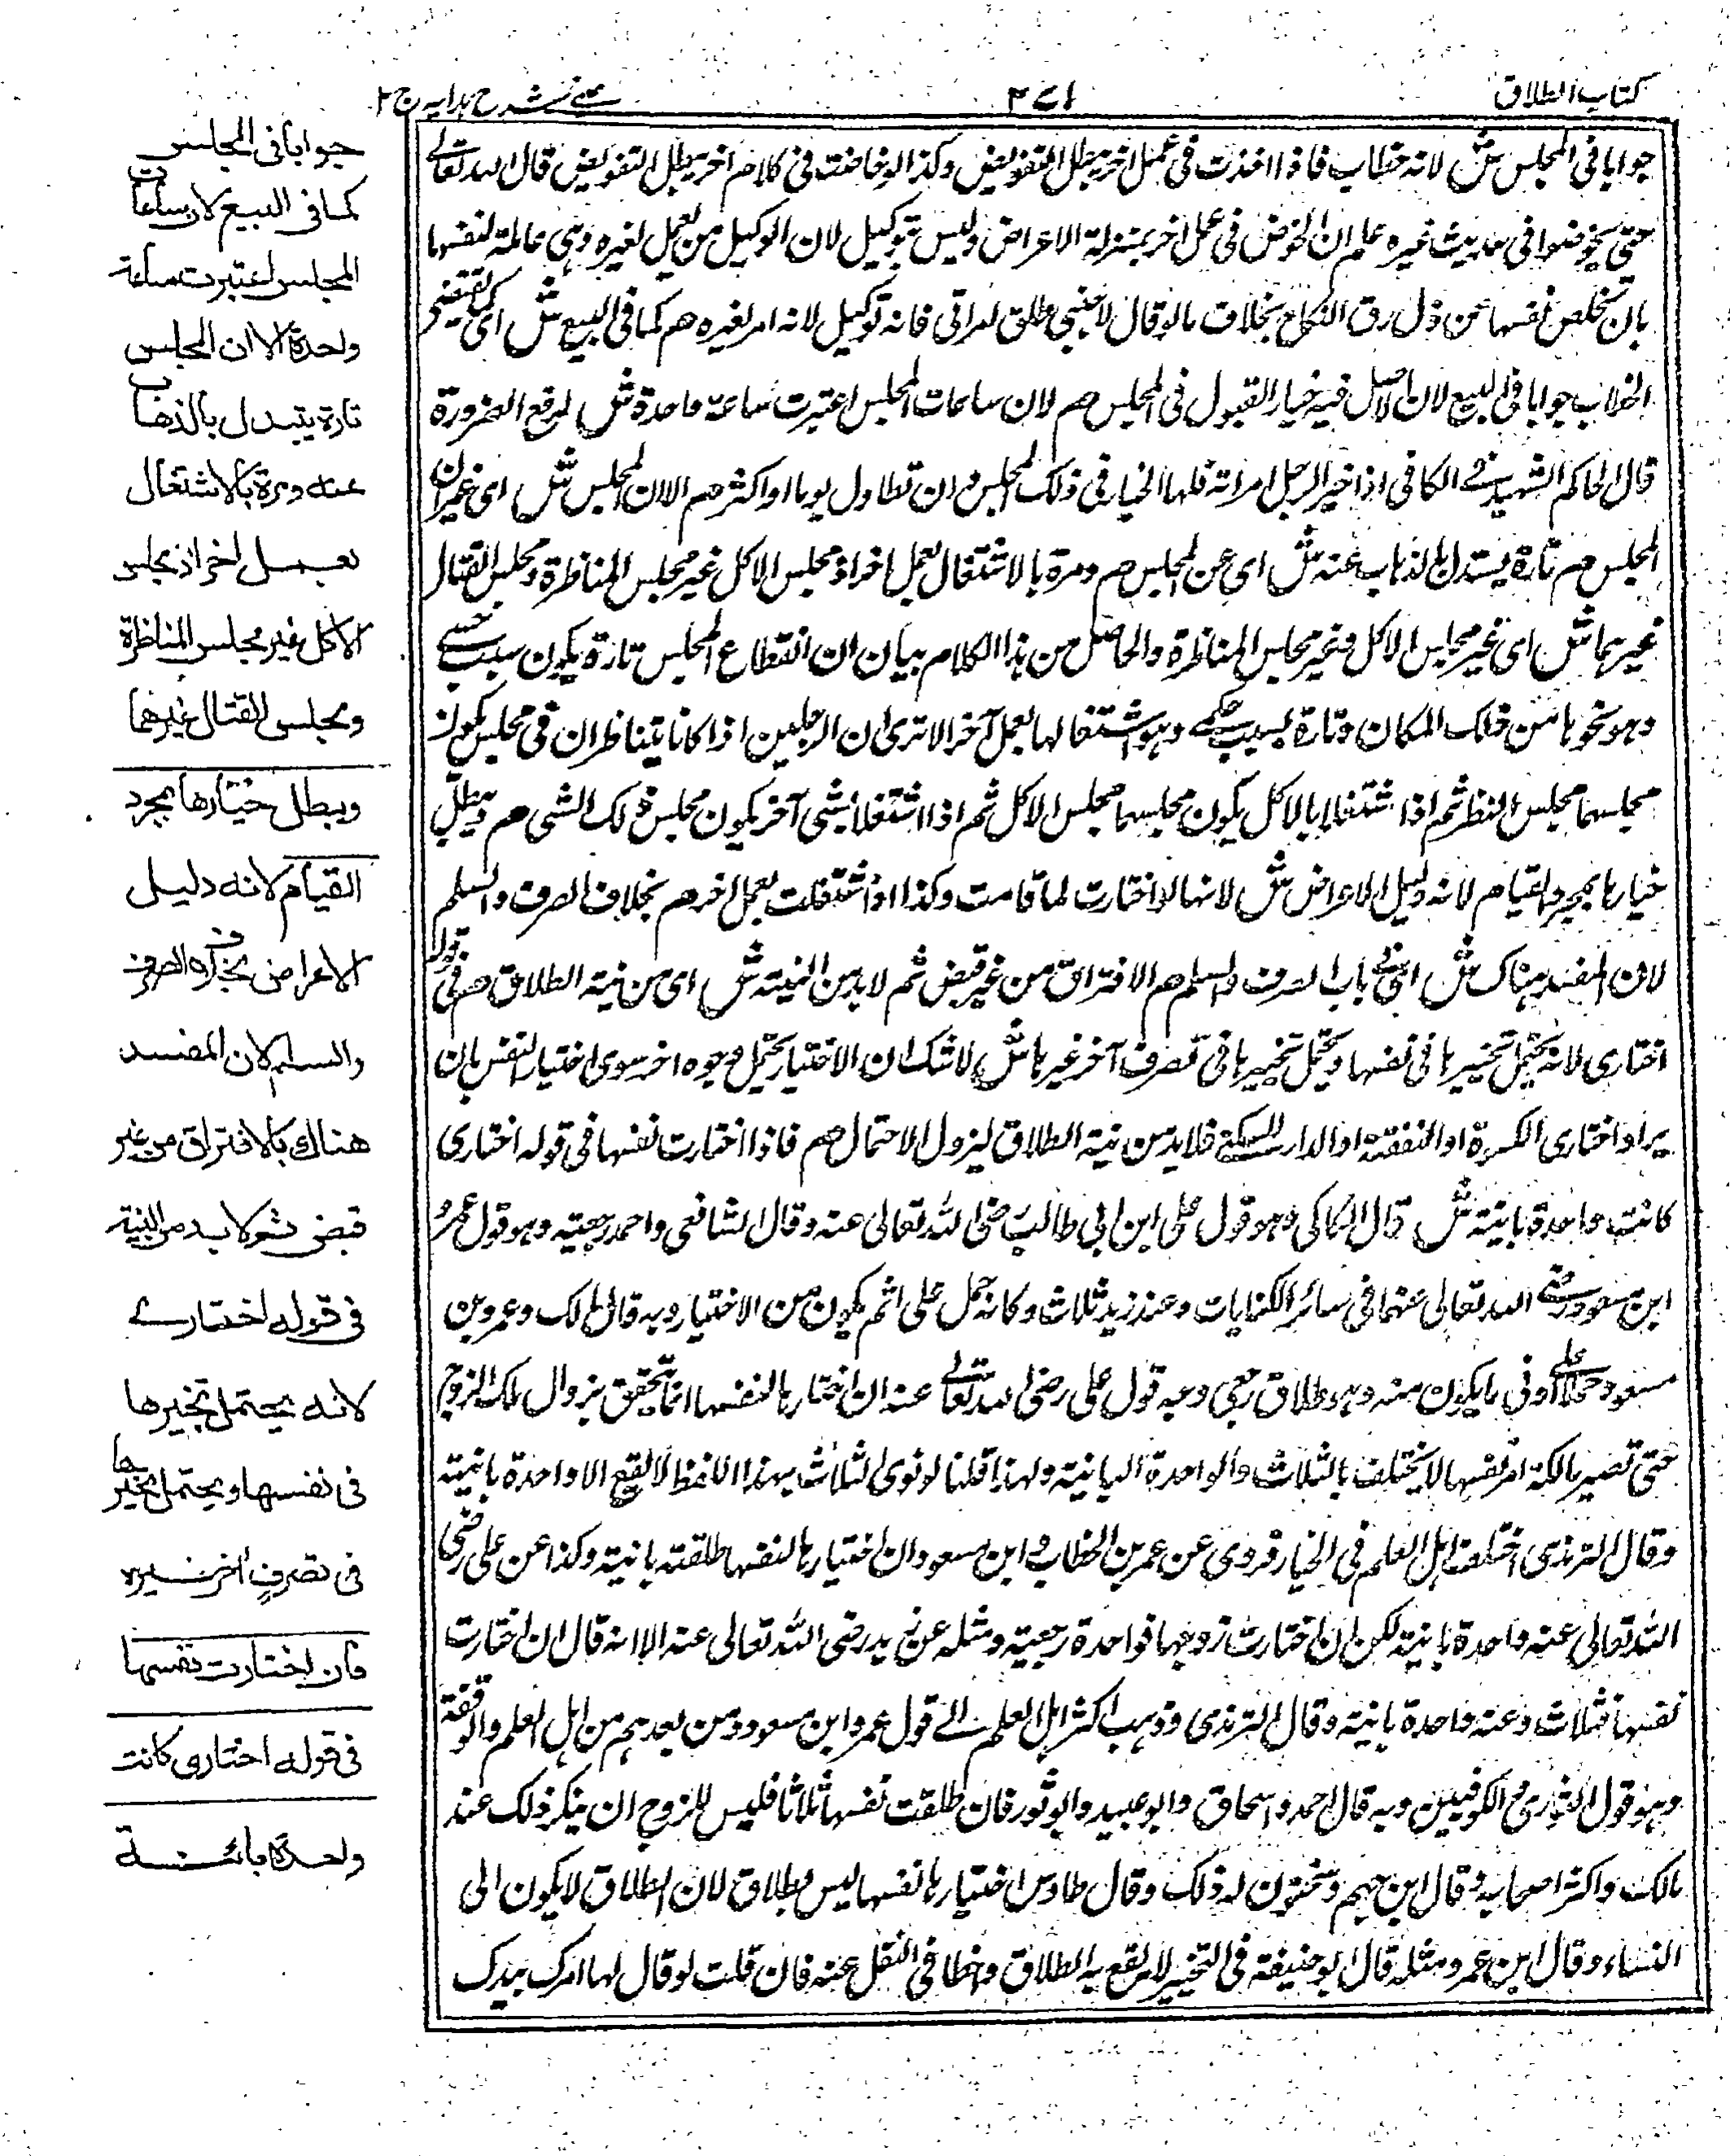 كتاب الطلاق
٣٧١
عينى شرح هدايه ج ٢
جوابا فى المجلس ش لانه خطاب فاذا اخذت فى عمل اخر يبطل التفويض وكذا لو خاضت فى كلام اخر يبطل التفويض قال الله تعالى
حتى يخوضوا فى حديث غيره علم ان الخوض فى عمل اخر بمنزلة الاعراض وليس بتوكيل لان الوكيل من يعمل لغيره وهى عاملة لنفسها
بان تخلص نفسها عن ذل رق النكاح بخلاف ما لو قال لاجنبى طلق امراتى فانه توكيل لانه امر لغيره هم كما فى البيع ش اى كما يقتضى
الخطاب جوابا فى البيع لان الاصل فيه خيار القبول فى المجلس هم لان ساعات المجلس اعتبرت ساعة واحدة ش لدفع الضرورة
قال الحاكم الشهيد فى الكافى اذا خير الرجل امراته فلها الخيار فى ذلك المجلس وان تطاول يوما او اكثر هم الا ان المجلس ش اى غير ان
المجلس هم تارة يتبدل بالذهاب عنه ش اى عن المجلس هم ومرة بالاشتغال بعمل اخر اذ مجلس الاكل غير مجلس المناظرة ومجلس القتال
غيرهما ش اى غير مجلس الاكل وغير مجلس المناظرة والحاصل من هذا الكلام بيان ان انقطاع المجلس تارة يكون بسبب حسى
وهو نحوها من ذلك المكان وتارة بسبب حكمى وهو اشتغالها بعمل آخر الا ترى ان الرجلين اذا كانا يتناظران فى مجلس يكون
مجلسهما مجلس النظر ثم اذا اشتغلا بالاكل يكون مجلسهما مجلس الاكل ثم اذا اشتغلا بشى آخر يكون مجلس ذلك الشى هم ويبطل
خيارها بمجرد القيام لانه دليل الاعراض ش لانها لو اختارت لما قامت وكذا اذا اشتغلت بعمل اخر هم بخلاف الصرف والسلم
لان المفسد هناك ش اى فى باب الصرف والسلم هم الافتراق من غير قبض ثم لا بد من النية ش اى من نية الطلاق هم فى قوله
اختارى لانه يحتمل تخييرها فى نفسها ويحتمل تخييرها فى تصرف آخر غيره ش لا شك ان الاختيار يحتمل وجوه اخر سوى اختيار النفس بان
يراد اختارى الكسرة او النفقة او الدار للسكنى فلا بد من نية الطلاق ليزول الاحتمال هم فاذا اختارت نفسها فى قوله اختارى
كانت واحدة بائنة ش قال الكاكى وهو قول على ابن ابى طالب رضى الله تعالى عنه وقال الشافعى واحمد رجعية وهو قول عمر و
ابن مسعود رضى الله تعالى عنهما فى سائر الكنايات وعند زيد ثلاث وكانه حمل على اتم يكون من الاختيار وبه قال مالك وعمر وبن
مسعود حملا على ادنى ما يكون منه وهو طلاق رجعى وجه قول على رضى الله تعالى عنه ان اختيارها لنفسها انما يتحقق بزوال ملك الزوج
حتى تصير مالكة امر نفسها لا يختلف بالثلاث والواحدة البائنة ولهذا قلنا لو نوى الثلاث بهذا اللفظ لا يقع الا واحدة بائنة
وقال الترمذى اختلفت اهل العلم فى الخيار فروى عن عمر بن الخطاب و ابن مسعود ان اختيارها لنفسها طلقة بائنة وكذا عن على رضى
الله تعالى عنه واحدة بائنة لكن ان اختارت زوجها فواحدة رجعية ومثله عن زيد رضى الله تعالى عنه الا انه قال ان اختارت
نفسها فثلاث وعنه واحدة بائنة وقال الترمذى وذهب اكثر اهل العلم الى قول عمر وابن مسعود ومن بعدهم من اهل العلم والفقه
وهو قول الثورى والكوفيين وبه قال احمد واسحاق وابو عبيد وابو ثور فان طلقت نفسها ثلاثا فليس للزوج ان ينكر ذلك عند
مالك واكثر اصحابه وقال ابن جهم وسحنون له ذلك وقال طاوس اختيارها نفسها ليس بطلاق لان الطلاق لا يكون الى
النساء وقال ابن عمر ومثله قال ابو حنيفة فى التخيير لا يقع به الطلاق واخطا فى النقل عنه فان قلت لو قال لها امرك بيدك
جوابا فى المجلس
كما فى البيع لان ساعات
المجلس اعتبرت ساعة
واحدة الا ان المجلس
تارة يتبدل بالذهاب
عنه ومرة بالاشتغال
بعمل اخر اذ مجلس
الاكل غير مجلس المناظرة
ومجلس القتال غيرهما
ويبطل خيارها بمجرد
القيام لانه دليل
الاعراض بخلاف الصرف
والسلم لان المفسد
هناك بالافتراق من غير
قبض ثم لا بد من النية
فى قوله اختارى
لانه يحتمل تخييرها
فى نفسها ويحتمل تخييرها
فى تصرف اخر غيره
فان اختارت نفسها
فى قوله اختارى كانت
واحدة بائنة